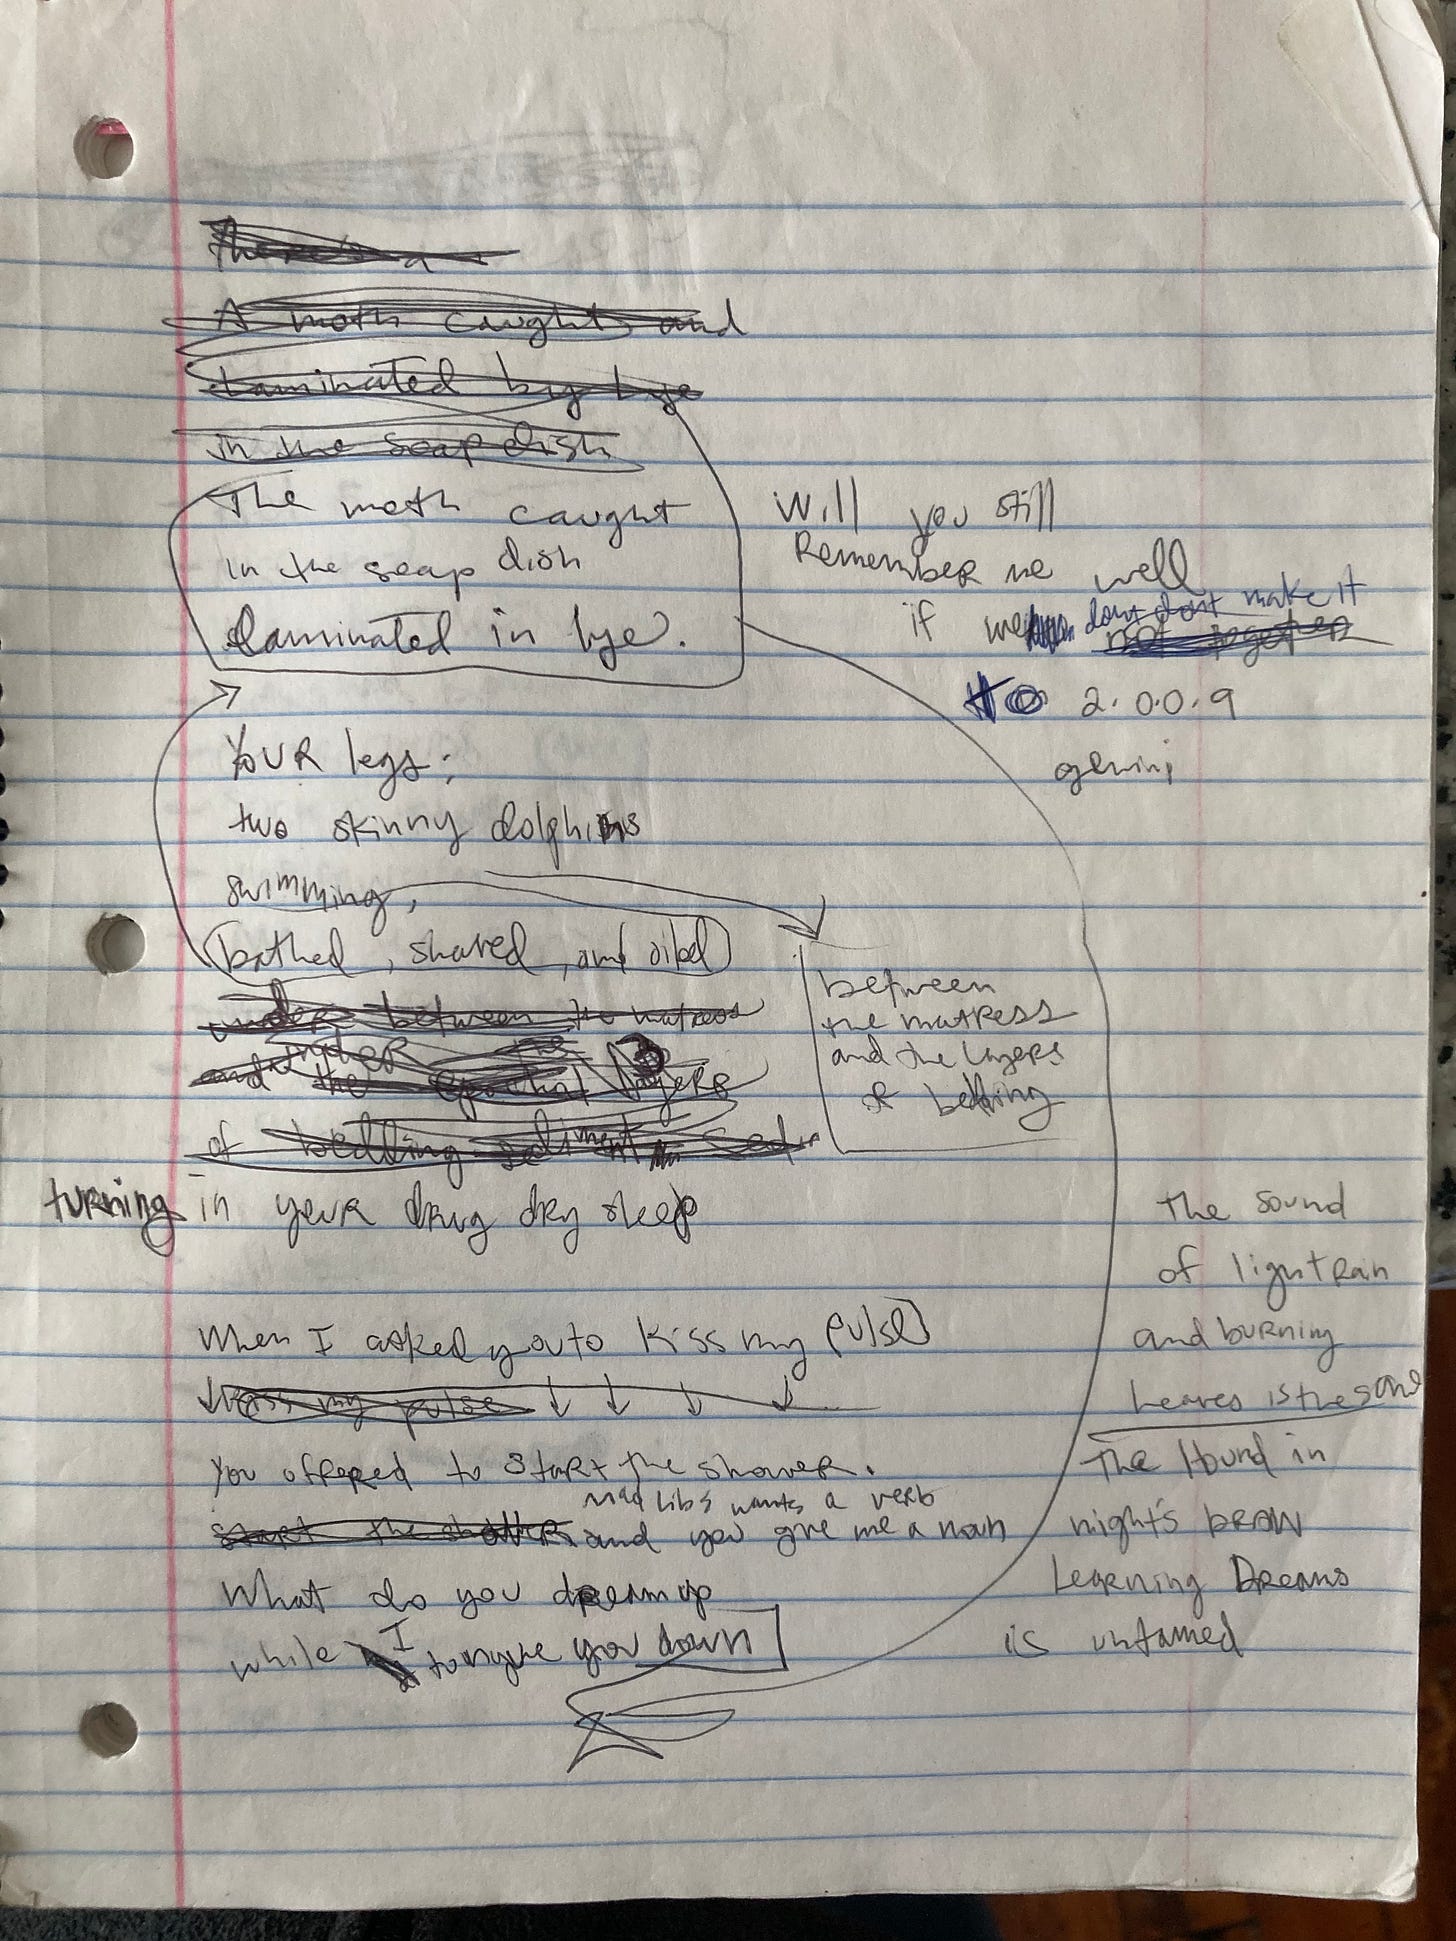 There's a
A moth caught and
laminated by lye
in the soap dish
The moth caught
in the soap dish
laminated in lye.
Will you still
Remember me well
if we dont dont make it
not together
to 2.0.0.9
gemini
YOUR legs:
two skinny dolphins
swimming,
bathed, shaved, and oiled
under between the matress
and under the
the epochal layers
of bedding sediment
between
the matress
and the layers
of bedding
turning in your drug dry sleep
When I asked you to kiss my pulse
kiss my pulse
You offered to start the shower.
mad libs wants a verb
start the shower and you give me a noun
What do you dream up
while I tongue you down
The sound
of light rain
and burning
leaves is the same
The Hound in
night's brow
Learning Dreams
is untamed